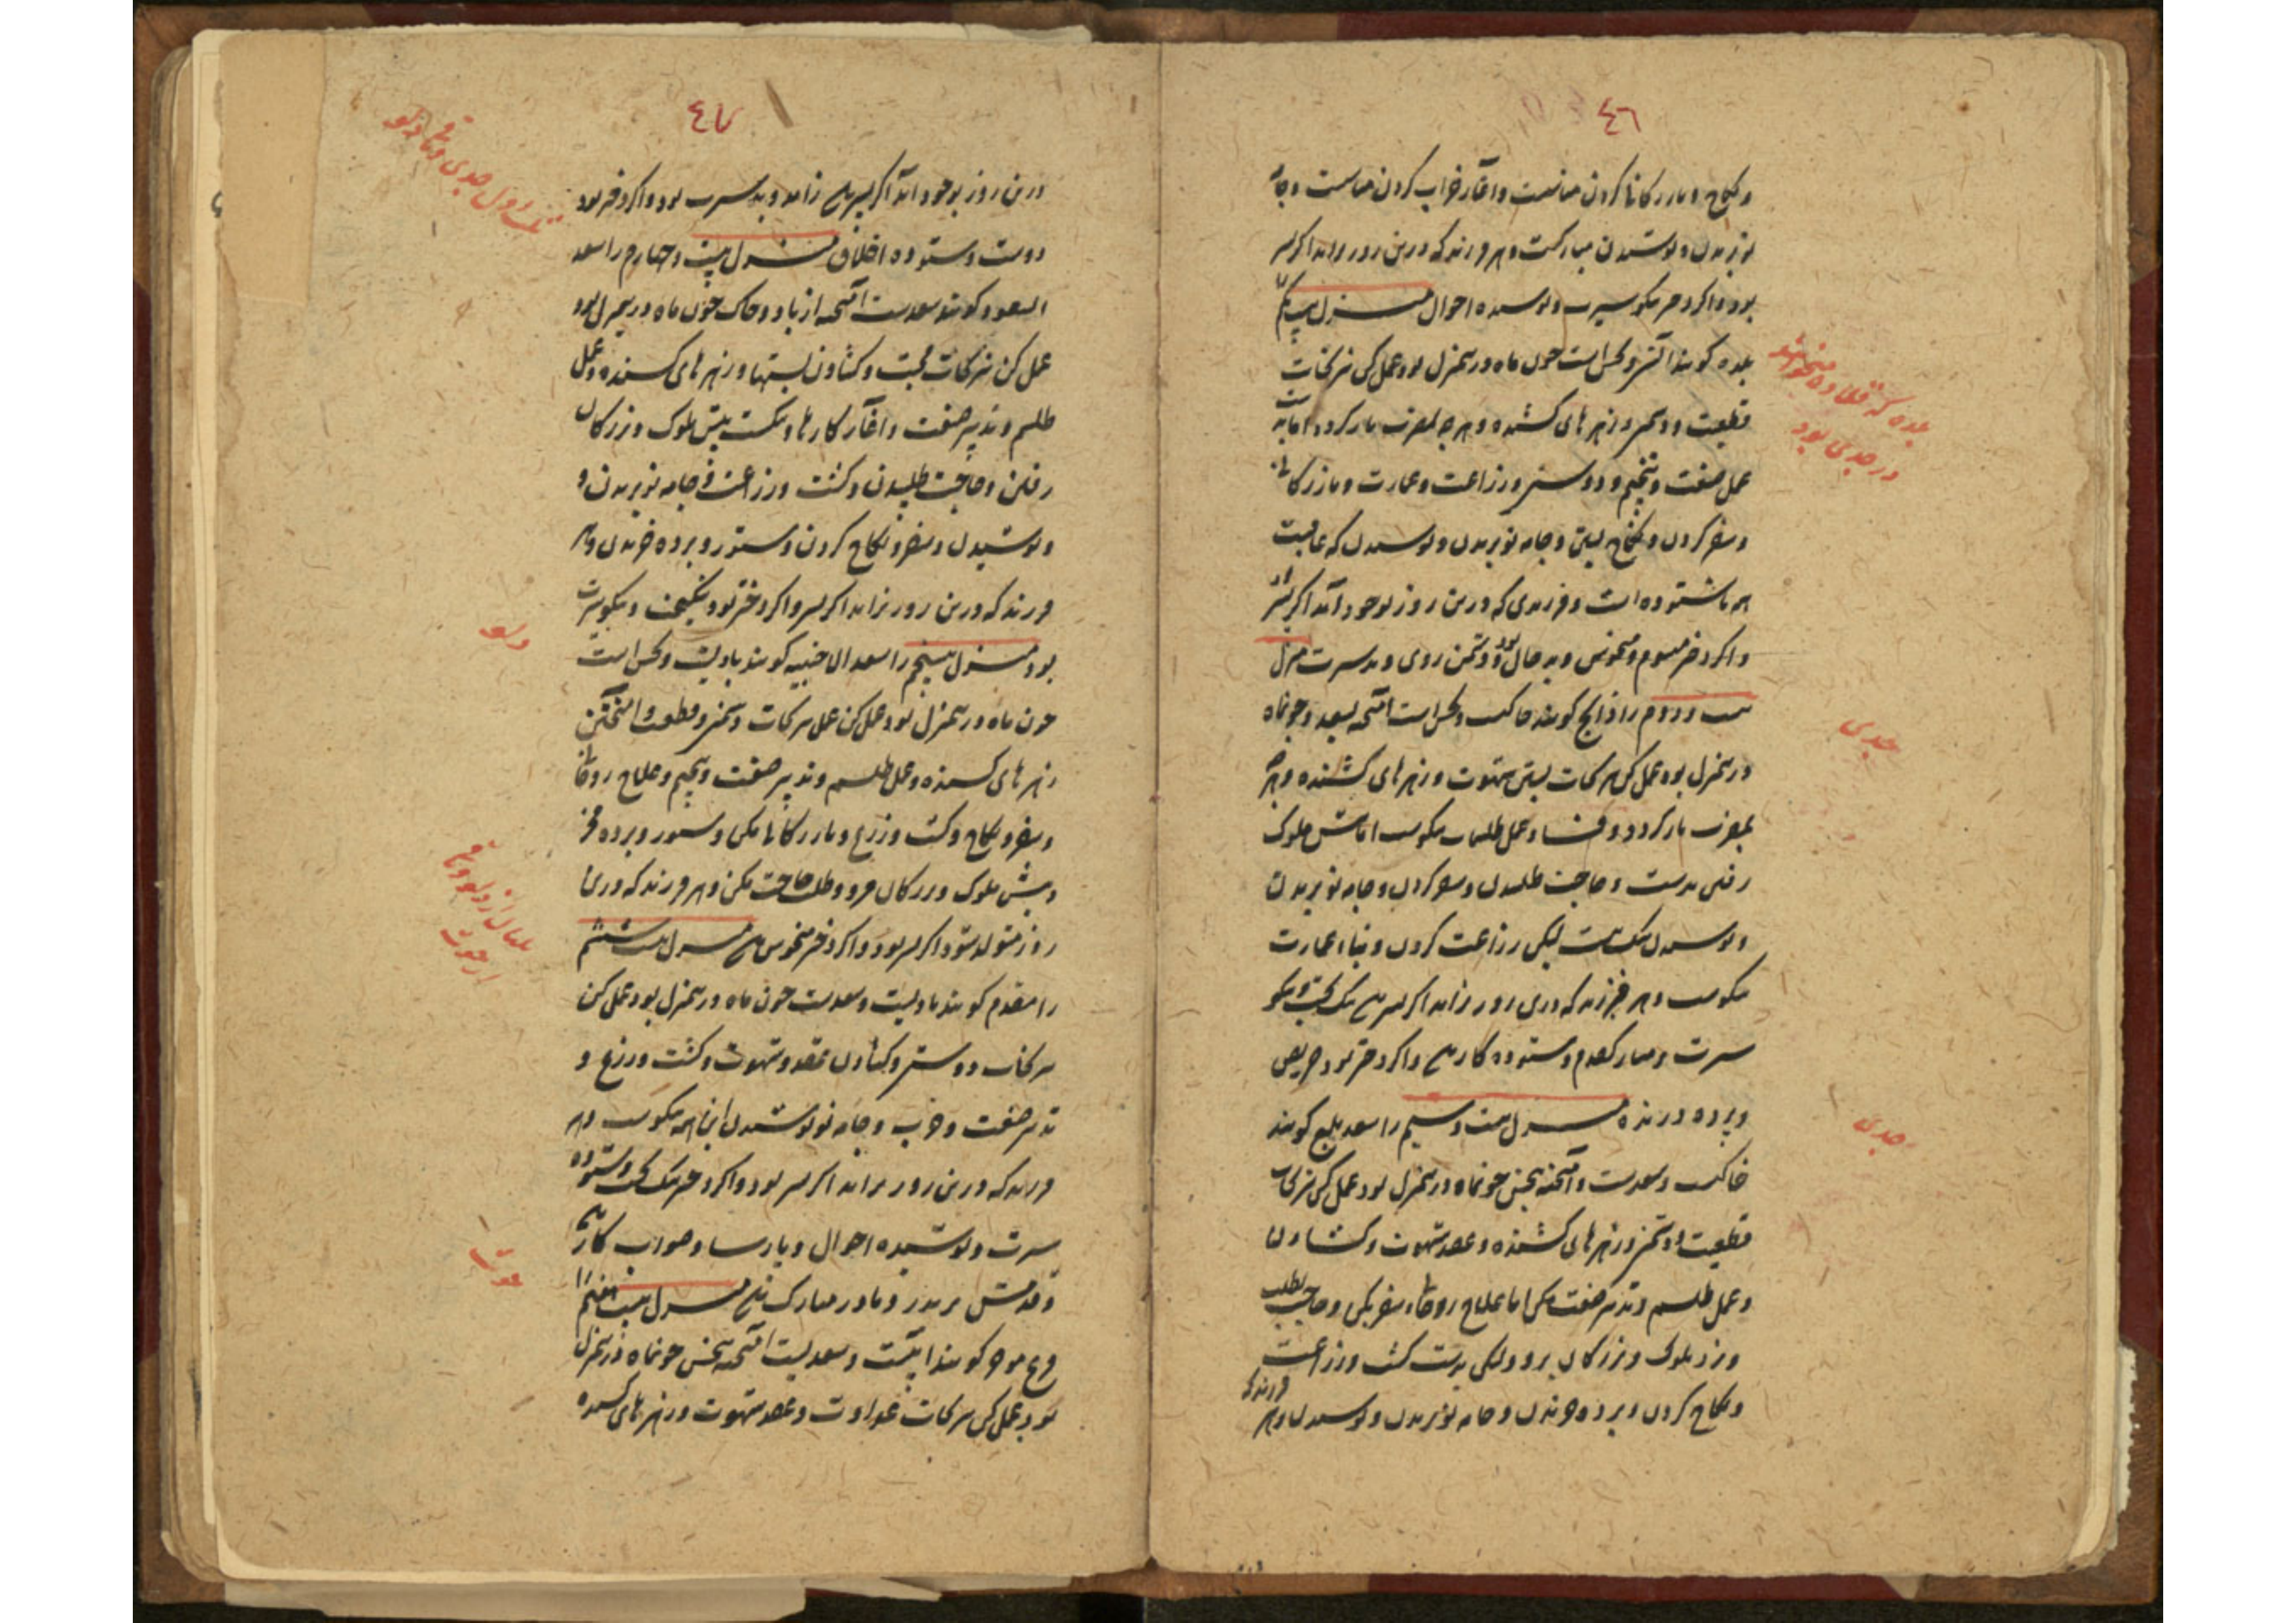 ٤٦
و نکاح و بازرگانی کردن میانست و آغاز خراب کردن میانست و جامه
نو بریدن و پوشیدن مبارکست و هر فرزند که درین روز زاید اگر پسر
بود و اگر دختر نیکو سیرت و پوشیده احوال منزل بیست یکم
بلده گویند آتشی و نحس است چون ماه درین منزل بود عمل کن نیرنجات
قطیعت و دشمنی و زهرهای کشنده و هر چه بمضرت باز گردد اما
عمل صنعت و تنجیم و دوستی و زراعت و عمارت و بازرگانی
و سفر کردن و نکاح بستن و جامه نو بریدن و پوشیدن که عاقبت
همه ناستوده است و فرزندی که درین روز بوجود آید اگر پسر
و اگر دختر میشوم و منحوس و بد حال بود و دشمن روی و بد سیرت منزل
بیست و دوم را ذابح گویند خاکیست و نحس است آمیخته بسعد و چون ماه
درین منزل بود عمل کن نیرنجات بستن شهوت و زهرهای کشنده و هر چه
بمضرت باز گردد و فساد و عمل طلسمات نیکوست اما پیش ملوک
رفتن بدست و حاجت طلبیدن و سفر کردن و جامه نو بریدن
و پوشیدن نیک نیست لیکن زراعت کردن و بناء عمارت
نیکوست و هر فرزند که درین روز زاید اگر پسر بود نیک بخت و نیکو
سیرت و مبارک قدم و ستوده کار بود و اگر دختر بود حریص
و پرده درنده منزل بیست و سیم را سعد بلع گویند
خاکیست و سعدست و آمیخته بنحس چون ماه درین منزل بود عمل کن نیرنجات
قطیعت و دشمنی و زهرهای کشنده و عقد شهوت و گشادن
و عمل طلسم و تدبیر صنعت مکن اما علاج روحانی و سفر بکن و حاجت بطلب
و نزد ملوک و بزرگان برو و لیکن بدست کشت و زراعت
و نکاح کردن و برده خریدن و جامه نو بریدن و پوشیدن و هر فرزند که
بلده که
در جدی بود
جدی
جدی
٤٧
درین روز بوجود آید اگر پسر بود زاهد و بد سیرت بود و اگر دختر بود
دوست و ستوده اخلاق منزل بیست و چهارم را سعد
السعود گویند سعدست آمیخته از باد و خاک چون ماه درین منزل بود
عمل کن نیرنجات محبت و گشادن بستها و زهرهای کشنده و عمل
طلسم و تدبیر صنعت و آغاز کارها و نیکست پیش ملوک و بزرگان
رفتن و حاجت طلبیدن و کشت و زراعت و جامه نو بریدن و
و پوشیدن و سفر و نکاح کردن و ستور و برده خریدن و هر
فرزند که درین روز زاید اگر پسر و اگر دختر بود نیکبخت و نیکو سیرت
بود منزل بیست پنجم را سعد الاخبیه گویند بادیست و نحس است
چون ماه درین منزل بود عمل کن عمل نیرنجات دشمنی و قطیعت و آمیختن
زهرهای کشنده و عمل طلسم و تدبیر صنعت و تنجیم و علاج روحانی
و سفر و نکاح و کشت و زرع و بازرگانی مکن و ستور و برده مخر
و پیش ملوک و بزرگان مرو و طلب حاجت مکن و هر فرزند که درین
روز متولد شود اگر پسر بود و اگر دختر منحوس بود منزل بیست ششم
را مقدم گویند بادیست و سعدست چون ماه درین منزل بود عمل کن
نیرنجات دوستی و گشادن عقد و شهوت و کشت و زرع و
تدبیر صنعت و حرب و جامه نو پوشیدن این همه نیکوست و هر
فرزند که درین روز زاید اگر پسر بود و اگر دختر نیک بخت و ستوده
سیرت و پوشیده احوال و پارسا و صواب کار بود
و قدمش بر پدر و مادر مبارک بود منزل بیست هفتم را
فرع مؤخر گویند آبیست و سعدیست آمیخته بنحس چون ماه درین منزل
بود عمل کن نیرنجات عداوت و عقد شهوت و زهرهای کشنده
دلو
حوت